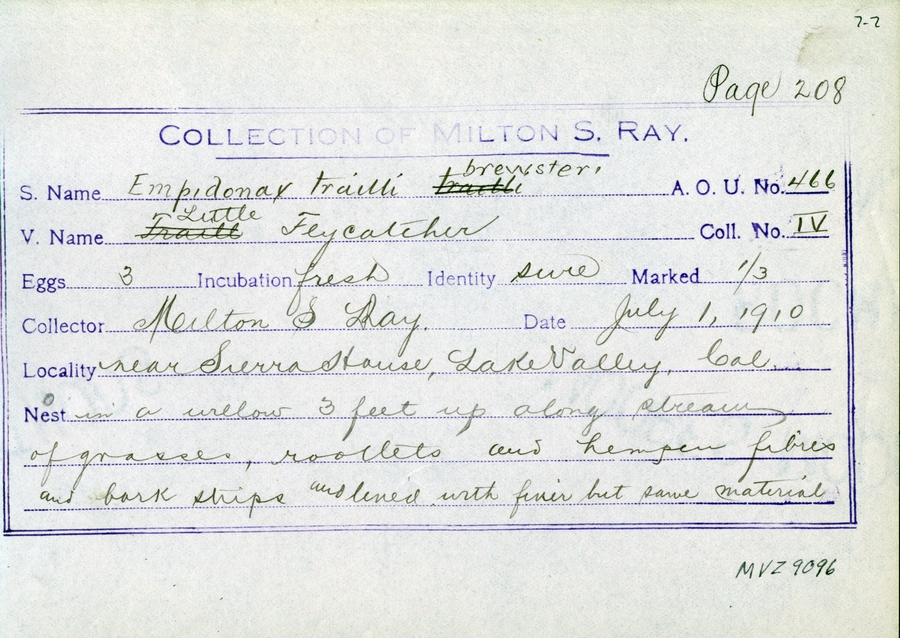 7-7
Page 208
COLLECTION OF MILTON S. RAY.
brewsteri
S. Name Empidonax trailli trailli A. O. U. No. 466
Little
V. Name Traill Flycatcher Coll. No. IV
Eggs 3 Incubation fresh Identity sure Marked 1/3
Collector Milton S Ray. Date July 1, 1910
Locality near Sierra House, Lake Valley, Cal.
Nest in a willow 3 feet up along stream
of grasses, rootlets and hempen fibres
and bark strips and lined with finer but same material
MVZ 9096